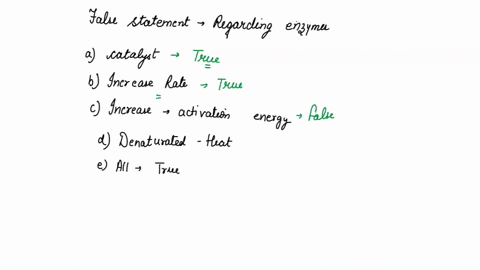 False statement → Regarding enzymes
a) catalyst → True
b) Increase Rate → True
c) Increase → activation energy → false
d) Denaturated - Heat
e) All → True